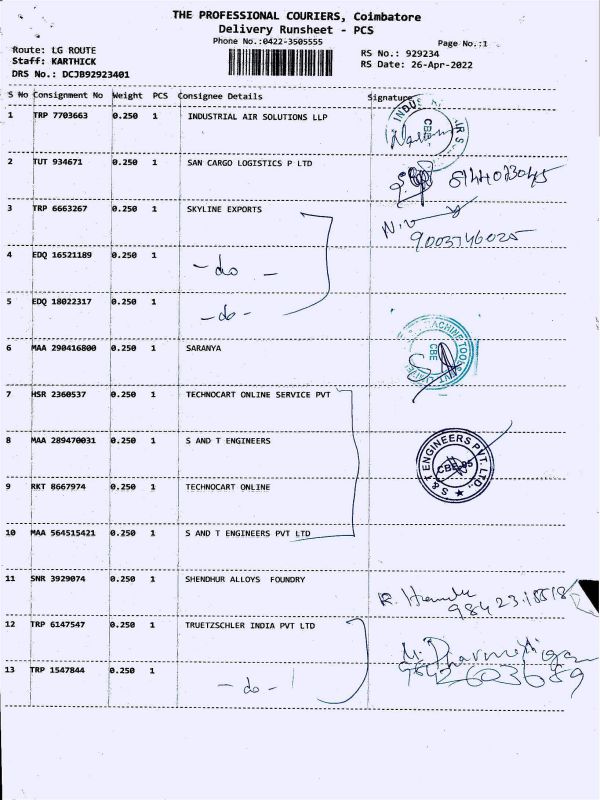 THE PROFESSIONAL COURIERS, Coimbatore
Delivery Runsheet - PCS
Phone No.:0422-3505555
Page No.:1
Route: LG ROUTE
Staff: KARTHICK
DRS No.: DCJB92923401
RS No.: 929234
RS Date: 26-Apr-2022
S No Consignment No Weight PCS Consignee Details Signature
1 TRP 7703663 0.250 1 INDUSTRIAL AIR SOLUTIONS LLP
CBE
2 TUT 934671 0.250 1 SAN CARGO LOGISTICS P LTD
3 TRP 6663267 0.250 1 SKYLINE EXPORTS
N.V
9003746025
4 EDQ 16521189 0.250 1 - do -
5 EDQ 18022317 0.250 1 - do -
6 MAA 290416800 0.250 1 SARANYA
MACHINE TOOLS
CBE
7 HSR 2360537 0.250 1 TECHNOCART ONLINE SERVICE PVT
8 MAA 289470031 0.250 1 S AND T ENGINEERS
S & T ENGINEERS PVT. LTD.
9 RKT 8667974 0.250 1 TECHNOCART ONLINE
10 MAA 564515421 0.250 1 S AND T ENGINEERS PVT LTD
11 SNR 3929074 0.250 1 SHENDHUR ALLOYS FOUNDRY
12 TRP 6147547 0.250 1 TRUETZSCHLER INDIA PVT LTD
9842603689
13 TRP 1547844 0.250 1 - do -